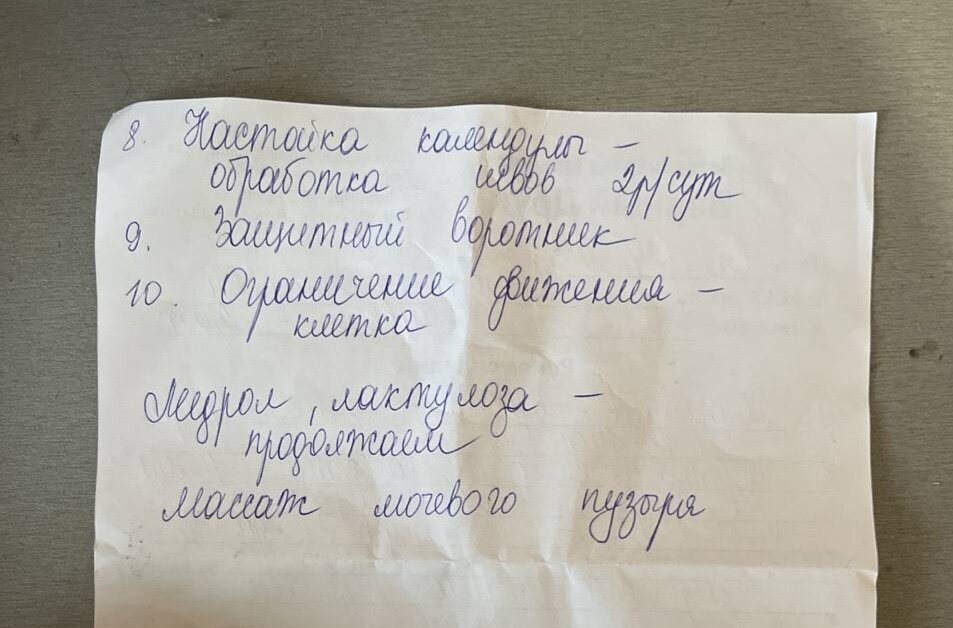 8. Настойка календулы –
обработка швов 2р/сут
9. Защитный воротник
10. Ограничение движения –
клетка
Медрол, лактулоза –
продолжаем
массаж мочевого пузыря